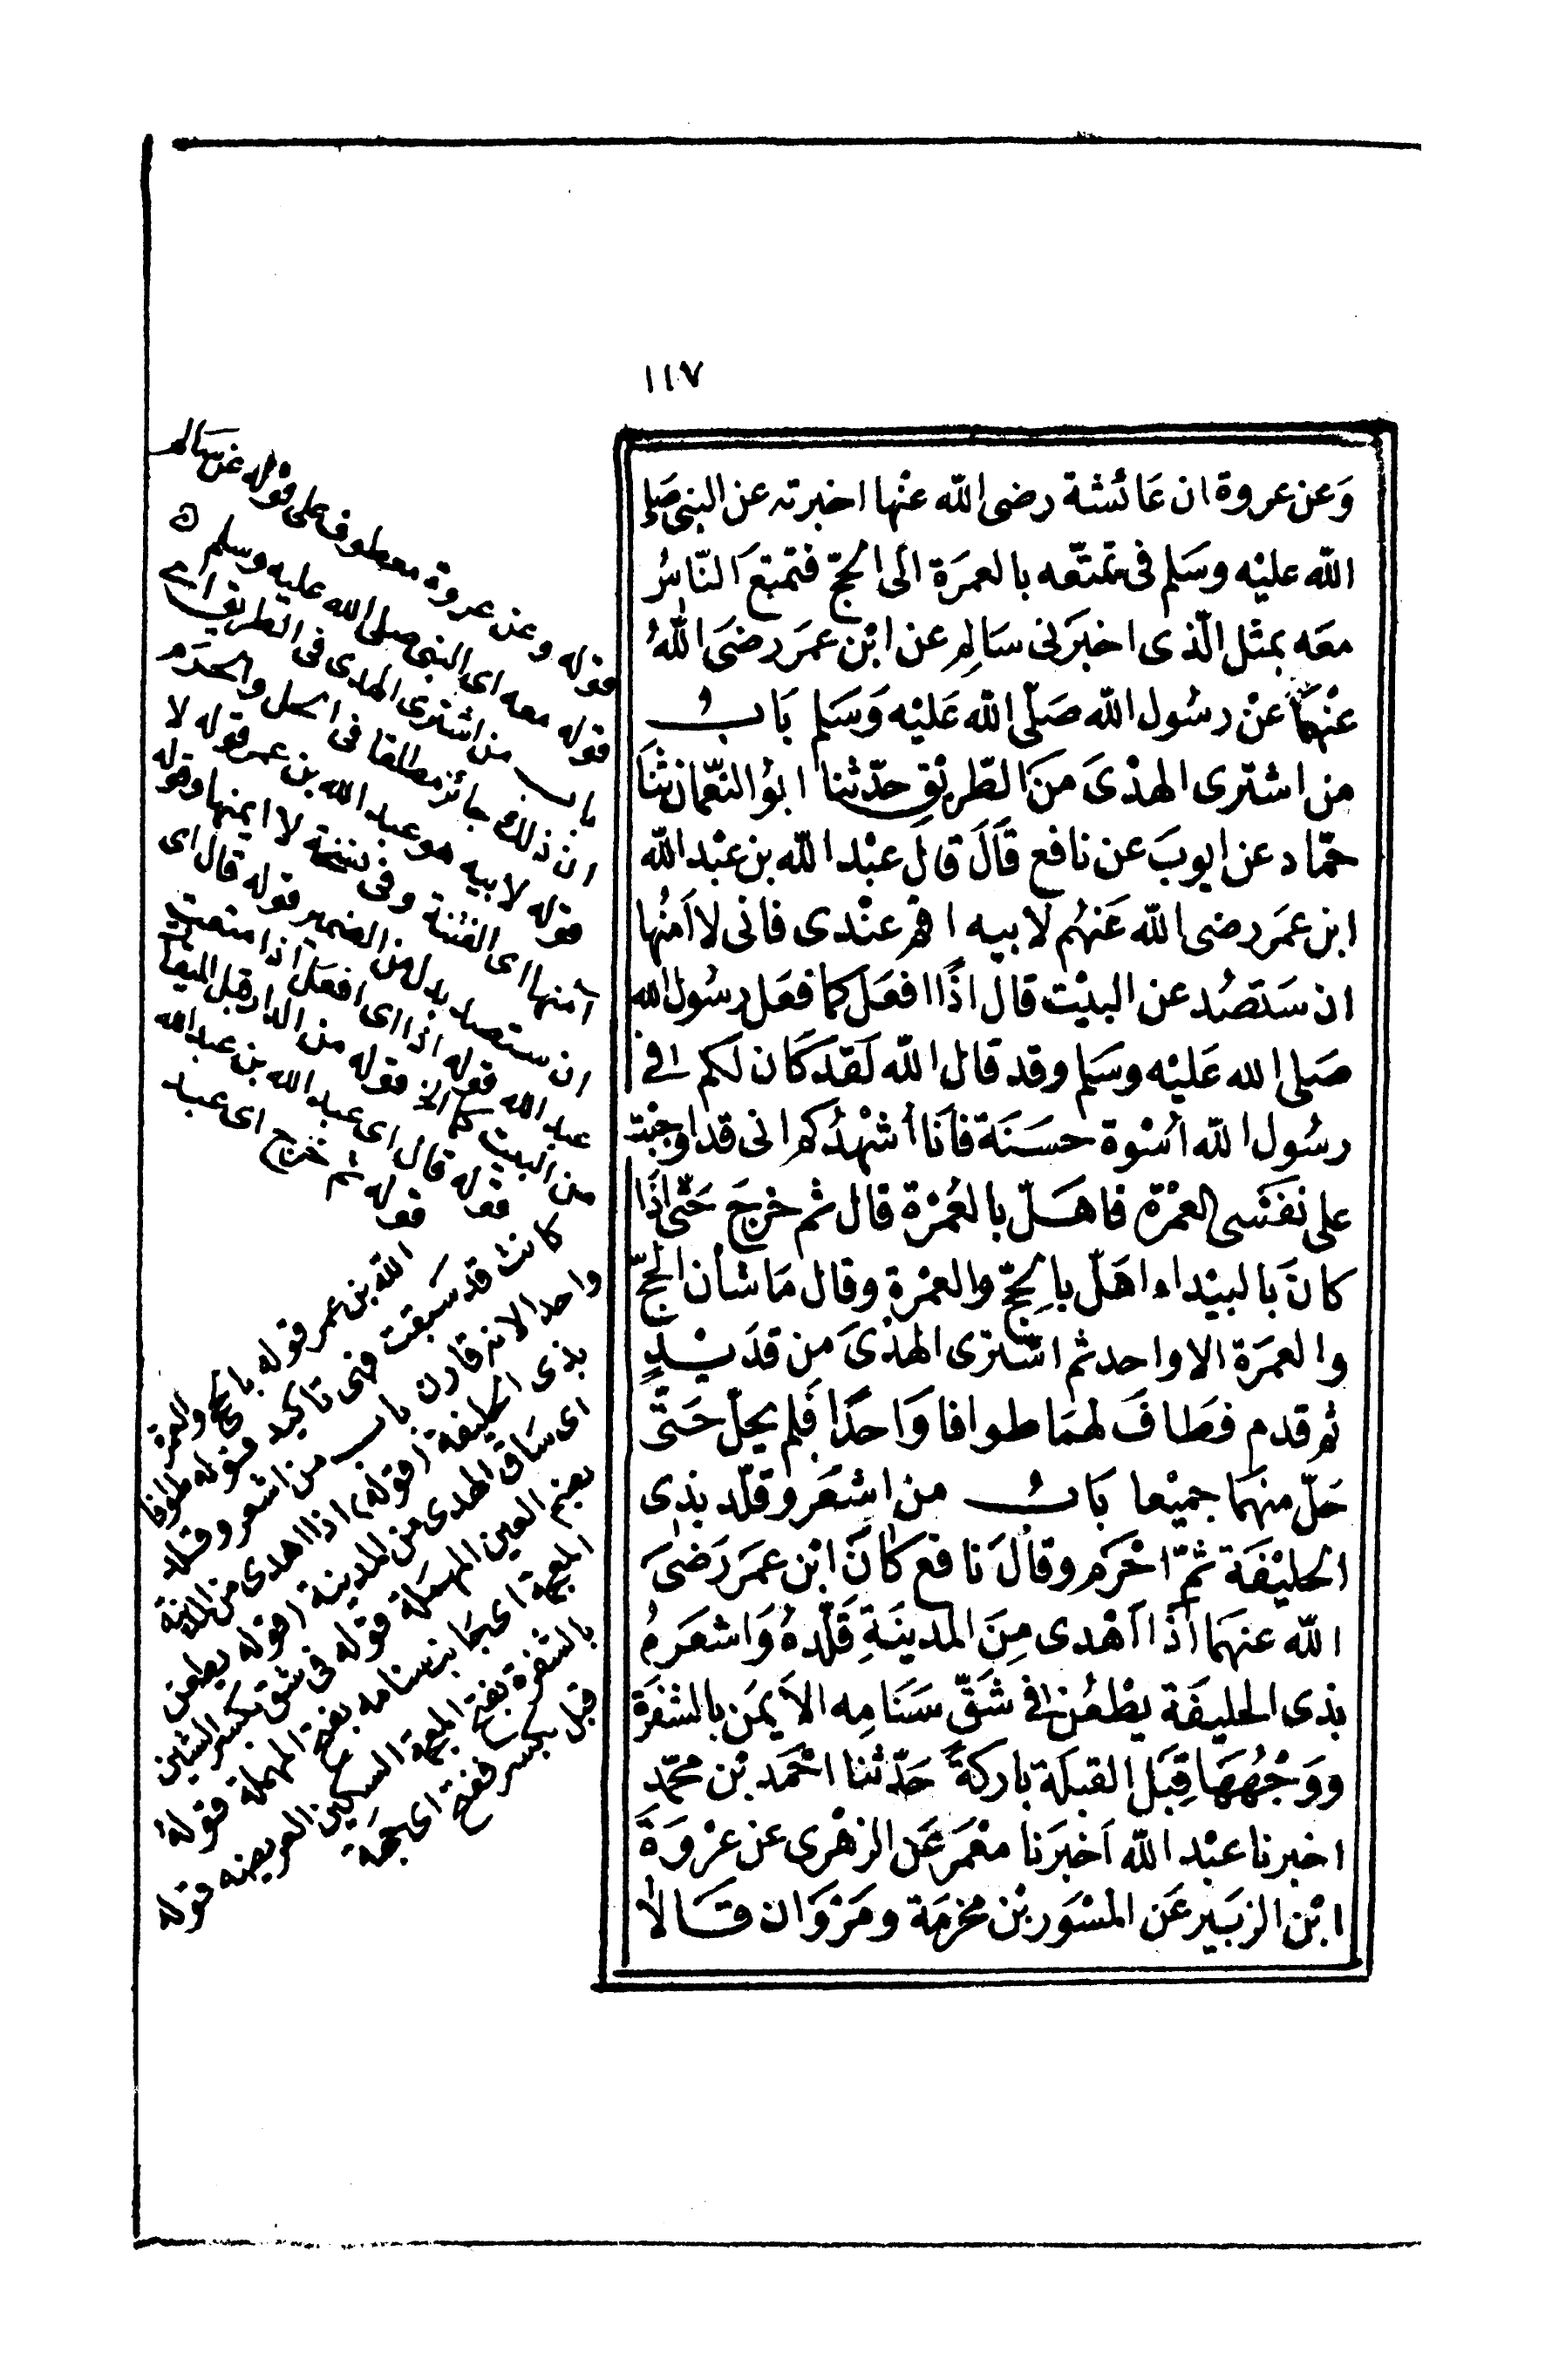 ١١٧
وَعن عروة ان عَائشة رضى الله عنْها اخبرته عن النبى صَلى
الله عليْه وسَلم فى تمتّعه بالعمرَة الَى الحجّ فتمتع َالنّاسُ
معَه بمثل الّذى اخبرَنى سَالِم عن ابْن عمَر رضىَ اللّهُ
عنْهمَا عنْ رسُول الله صَلّى الله عَليْه وَسَلم بَابُ
من اشترى الهدْىَ منَ الطّريْقِ حدّثنا ابوُالنّعْمان ثنَا
حمّاد عن ايوبَ عن نافع قَالَ قالَ عبْد الله بن عبْد الله
ابن عمَر رضى الله عَنهُم لابيه اقم عنْدى فانى لا اَمنُها
ان سَتصُد عن البيْت قال اذًا افعَل كما فعَل رسُول الله
صَلى الله عَليْه وسَلم وقد قال الله لَقدَ كَان لكم فى
رسُول الله اسْوة حسَنَة فاَنا اُشهْدُكم انى قد اوجَبْت
على نفَسْى العمْرَة فاهَلّ بالعُمْرَة قال ثم خرجَ حَتّى اذَا
كانَ بالبيْداء اهَلّ بالحجّ والعمْرَةِ وقال مَا شأن الحجّ
والعمرَة الا واحد ثم اشترى الهدْىَ من قدَيْدٍ
ثم قدم فطَافَ لهمَا طوافا وَاحدًا فَلم يحلّ حَتّى
حَلّ منهمَا جميْعا بَابُ من اشعَر وقلّد بذى
الحليْفَة ثمّ احْرَم وقالَ نافع كَانَ ابْن عمَر رَضىَ
الله عنهمَا اذَا اَهْدى مِنَ المدينَةِ قَلّدهُ وَاشعَرهُ
بذى الحليفَة يطْعُن فى شَقّ سَنَامِه الاَيمَن بالشفرَة
ووَجْهُهَا قِبَل القبلَة باركةً حَدّثنا احْمَد بْن محمّد
اخبرنا عبْد الله اَخبرَنا معْمَر عَن الزهْرى عن عرْوَةَ
ابْن الزبَير عَن المسْوَر بْن مخرمَة ومَرْوَان قَالاَ
قوله وعن عروة معطوف على قوله عن سَالم
قوله معه اى النبى صلى الله عليه وسلم
باب من اشترى الهدى فى الطريق اى
ان ذلك جائز مطلقا فى الحل والحرم
قوله لابيه هو عبد الله بن عمر قوله لا
آمنها اى الفتنة وفى نسخة لا ايمنها وقوله
ان ستصد بدل من الضمير قوله قال اى
عبد الله قوله اذا اى افعل اذا منعت
من البيت كما الخ قوله من الدار قبل الميقات
قوله قال اى عبد الله بن عبد الله
قوله ثم خرج اى عبد
الله بن عمر قوله بالحج والعمرة
كانت قد سَبقت فهى تاكيد قوله طوافا
واحد الانه قارن باب من اشعر وقلد
بذى الحليفة (قوله) اذا اهدى من المدينة
اى سَاق الهدى من المدينة (قوله يطعن
بضم العين المهملة قوله فى شق بكسر الشين
المعجمة اى جانب سنامه بفتح المهملة قوله
بالشفرة بفتح المعجمة السكين العريضه قوله
قبل بكسر ففتح اى جهَة